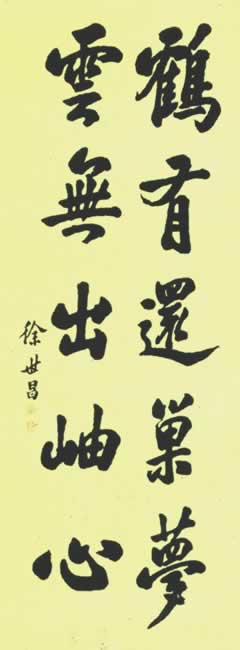 鶴有還巢夢
雲無出岫心
徐世昌